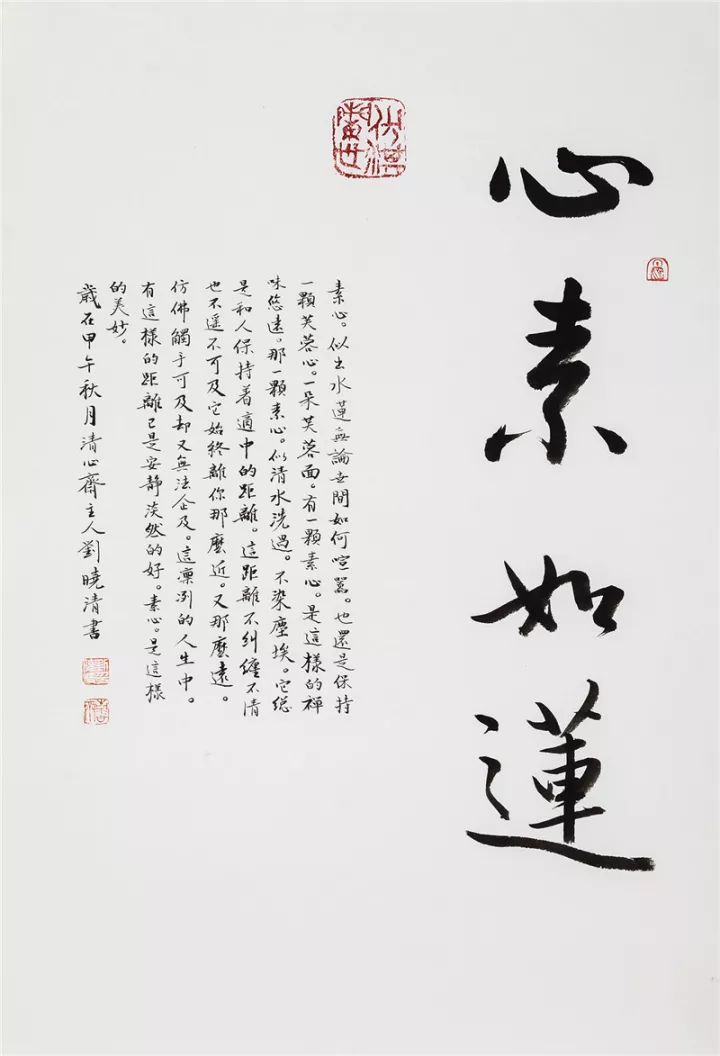 心素如蓮
素心。似出水蓮無論世間如何喧囂。也還是保持
一顆芙蓉心。一朵芙蓉面。有一顆素心。是這樣的禪
味悠遠。那一顆素心。似清水洗過。不染塵埃。它總
是和人保持着適中的距離。這距離不糾纏不清
也不遥不可及它始終離你那麼近。又那麼遠。
仿佛觸手可及却又無法企及。這凜冽的人生中。
有這樣的距離已是安靜淡然的好。素心。是這樣
的美妙。
歲在甲午秋月清心齋主人劉曉清書